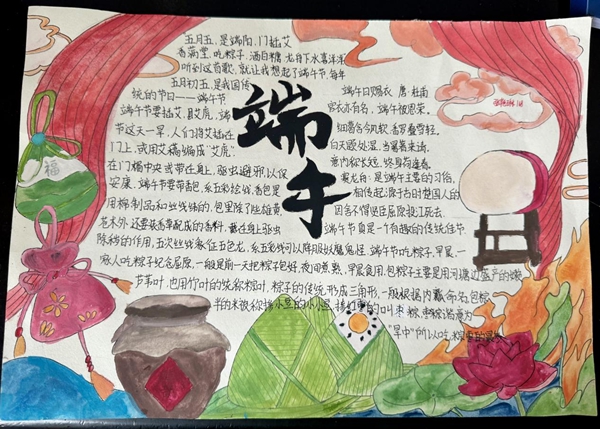 端午
五月五,是端阳,门插艾
香满堂,吃粽子,洒白糖,龙舟下水喜洋洋
听到这首歌,就让我想起了端午节,每年
五月初五,是我国传
统的节日——端午节
端午节要插艾,县艾虎,端
节这天一早,人们将艾插在
门上,或用艾编编成"艾虎"
在门楣中央或带在身上,驱虫避邪以保
安康,端午节要带香包,系五彩丝线,香包是
用棉制品和丝线绣的,包里除了些雄黄,
苍术外,还要装香草配成的香料,戴在身上驱虫
除秽的作用,五次丝线象征五色龙,系五彩线可以降服妖魔鬼怪,端午节吃粽子,早晨一
家人吃粽子纪念屈原,一般是前一天把粽子包好,夜间煮熟,早晨食用,包粽子主要是用河塘边盛产的嫩
节苇叶,也用竹叶的统称粽叶,粽子的传统形成三角形,一般根据内瓤命名,包糯
端午日赐衣 唐·杜甫
宫衣亦有名,端午被恩荣。
细葛含风软,香罗叠雪轻。
自天题处湿,当暑著来清,
意内称长短,终身荷圣情。
赛龙舟:是端午主要的习俗,
相传起源于古时楚国人的
因舍不得贤臣屈原投江死去
端午节真是一个有趣的传统佳节
福